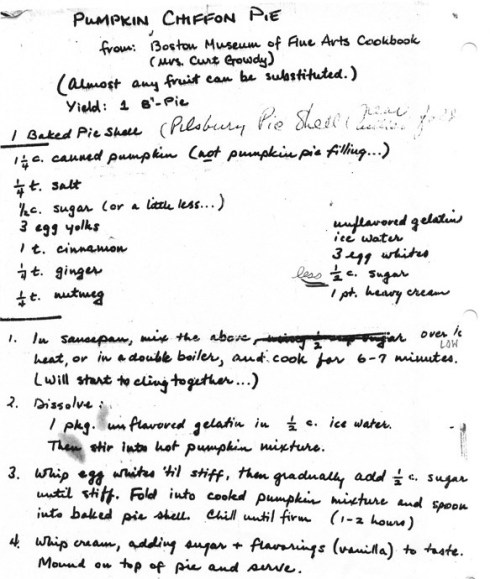 PUMPKIN CHIFFON PIE
from: Boston Museum of Fine Arts Cookbook
(Mrs. Curt Gowdy)
(Almost any fruit can be substituted.)
Yield: 1 8"-Pie
1 Baked Pie Shell (Pilsbury Pie Shell (near
1 1/4 c. canned pumpkin (not pumpkin pie filling...)
1/4 t. salt
1/2 c. sugar (or a little less...)
3 egg yolks
1 t. cinnamon
1/4 t. ginger
1/4 t. nutmeg
unflavored gelatin
ice water
3 egg whites
less 1/2 c. sugar
1 pt. heavy cream
1. In saucepan, mix the above, over
LOW
heat, or in a double boiler, and cook for 6-7 minutes.
(Will start to cling together...)
2. Dissolve:
1 pkg. unflavored gelatin in 1/2 c. ice water.
Then stir into hot pumpkin mixture.
3. Whip egg whites 'til stiff, then gradually add 1/2 c. sugar
until stiff. Fold into cooked pumpkin mixture and spoon
into baked pie shell. Chill until firm (1-2 hours)
4. Whip cream, adding sugar + flavorings (vanilla) to taste.
Mound on top of pie and serve.